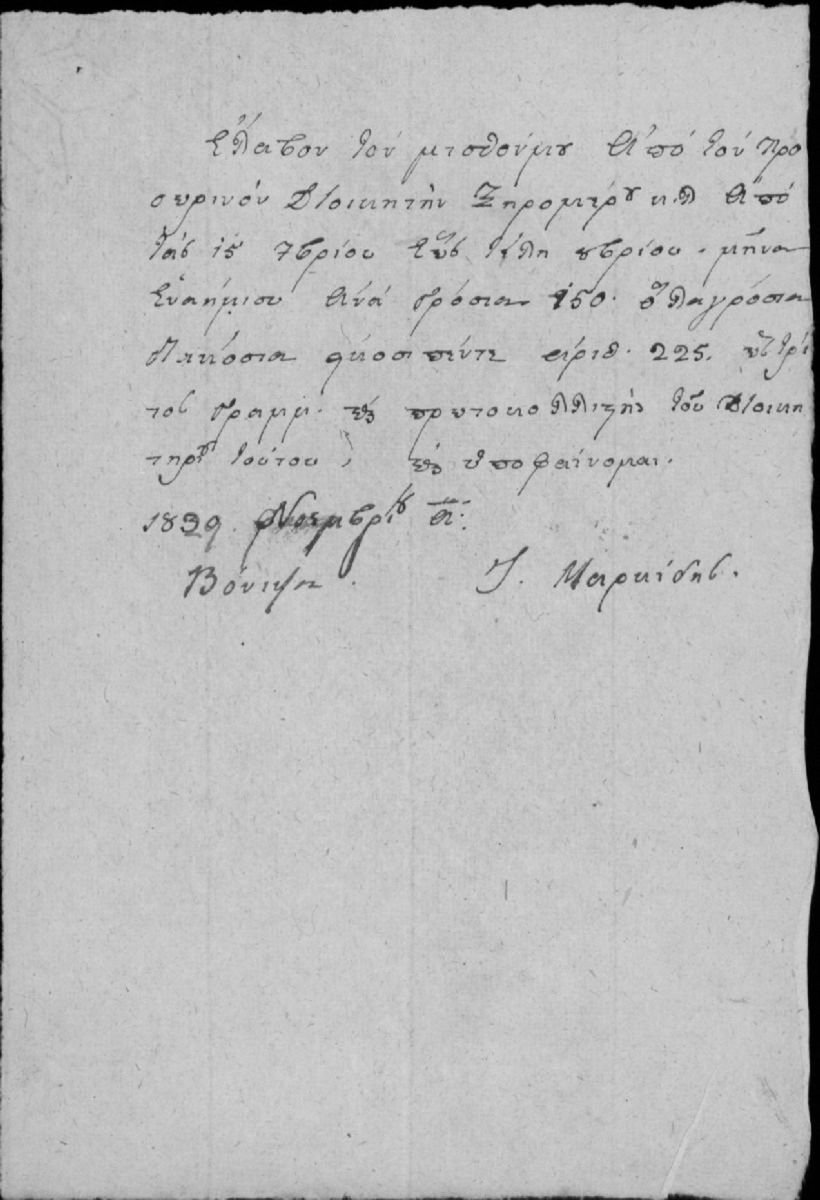 Ἔλαβον τόν μισθόνμου ἀπό τόν προ
σωρινόν Διοικητήν Ξηρομέρου κλ ἀπό
τάς 15 7βρίου ἕως τέλη 8βρίου. μῆνα
ἑναήμισυ ἀνά γρόσια 150. ὅλαγρόσια
διακόσια εἴκοσι πέντε ἀριθ. 225. ὡς τρί
τος γραμμ. καί πρωτοκολλιστής τοῦ Διοικη
τηρίου τούτου, καί ὑποφαίνομαι.
1829. Νοεμβρίου α:
Βόνιτζα.
Ι. Μαρκίδης.